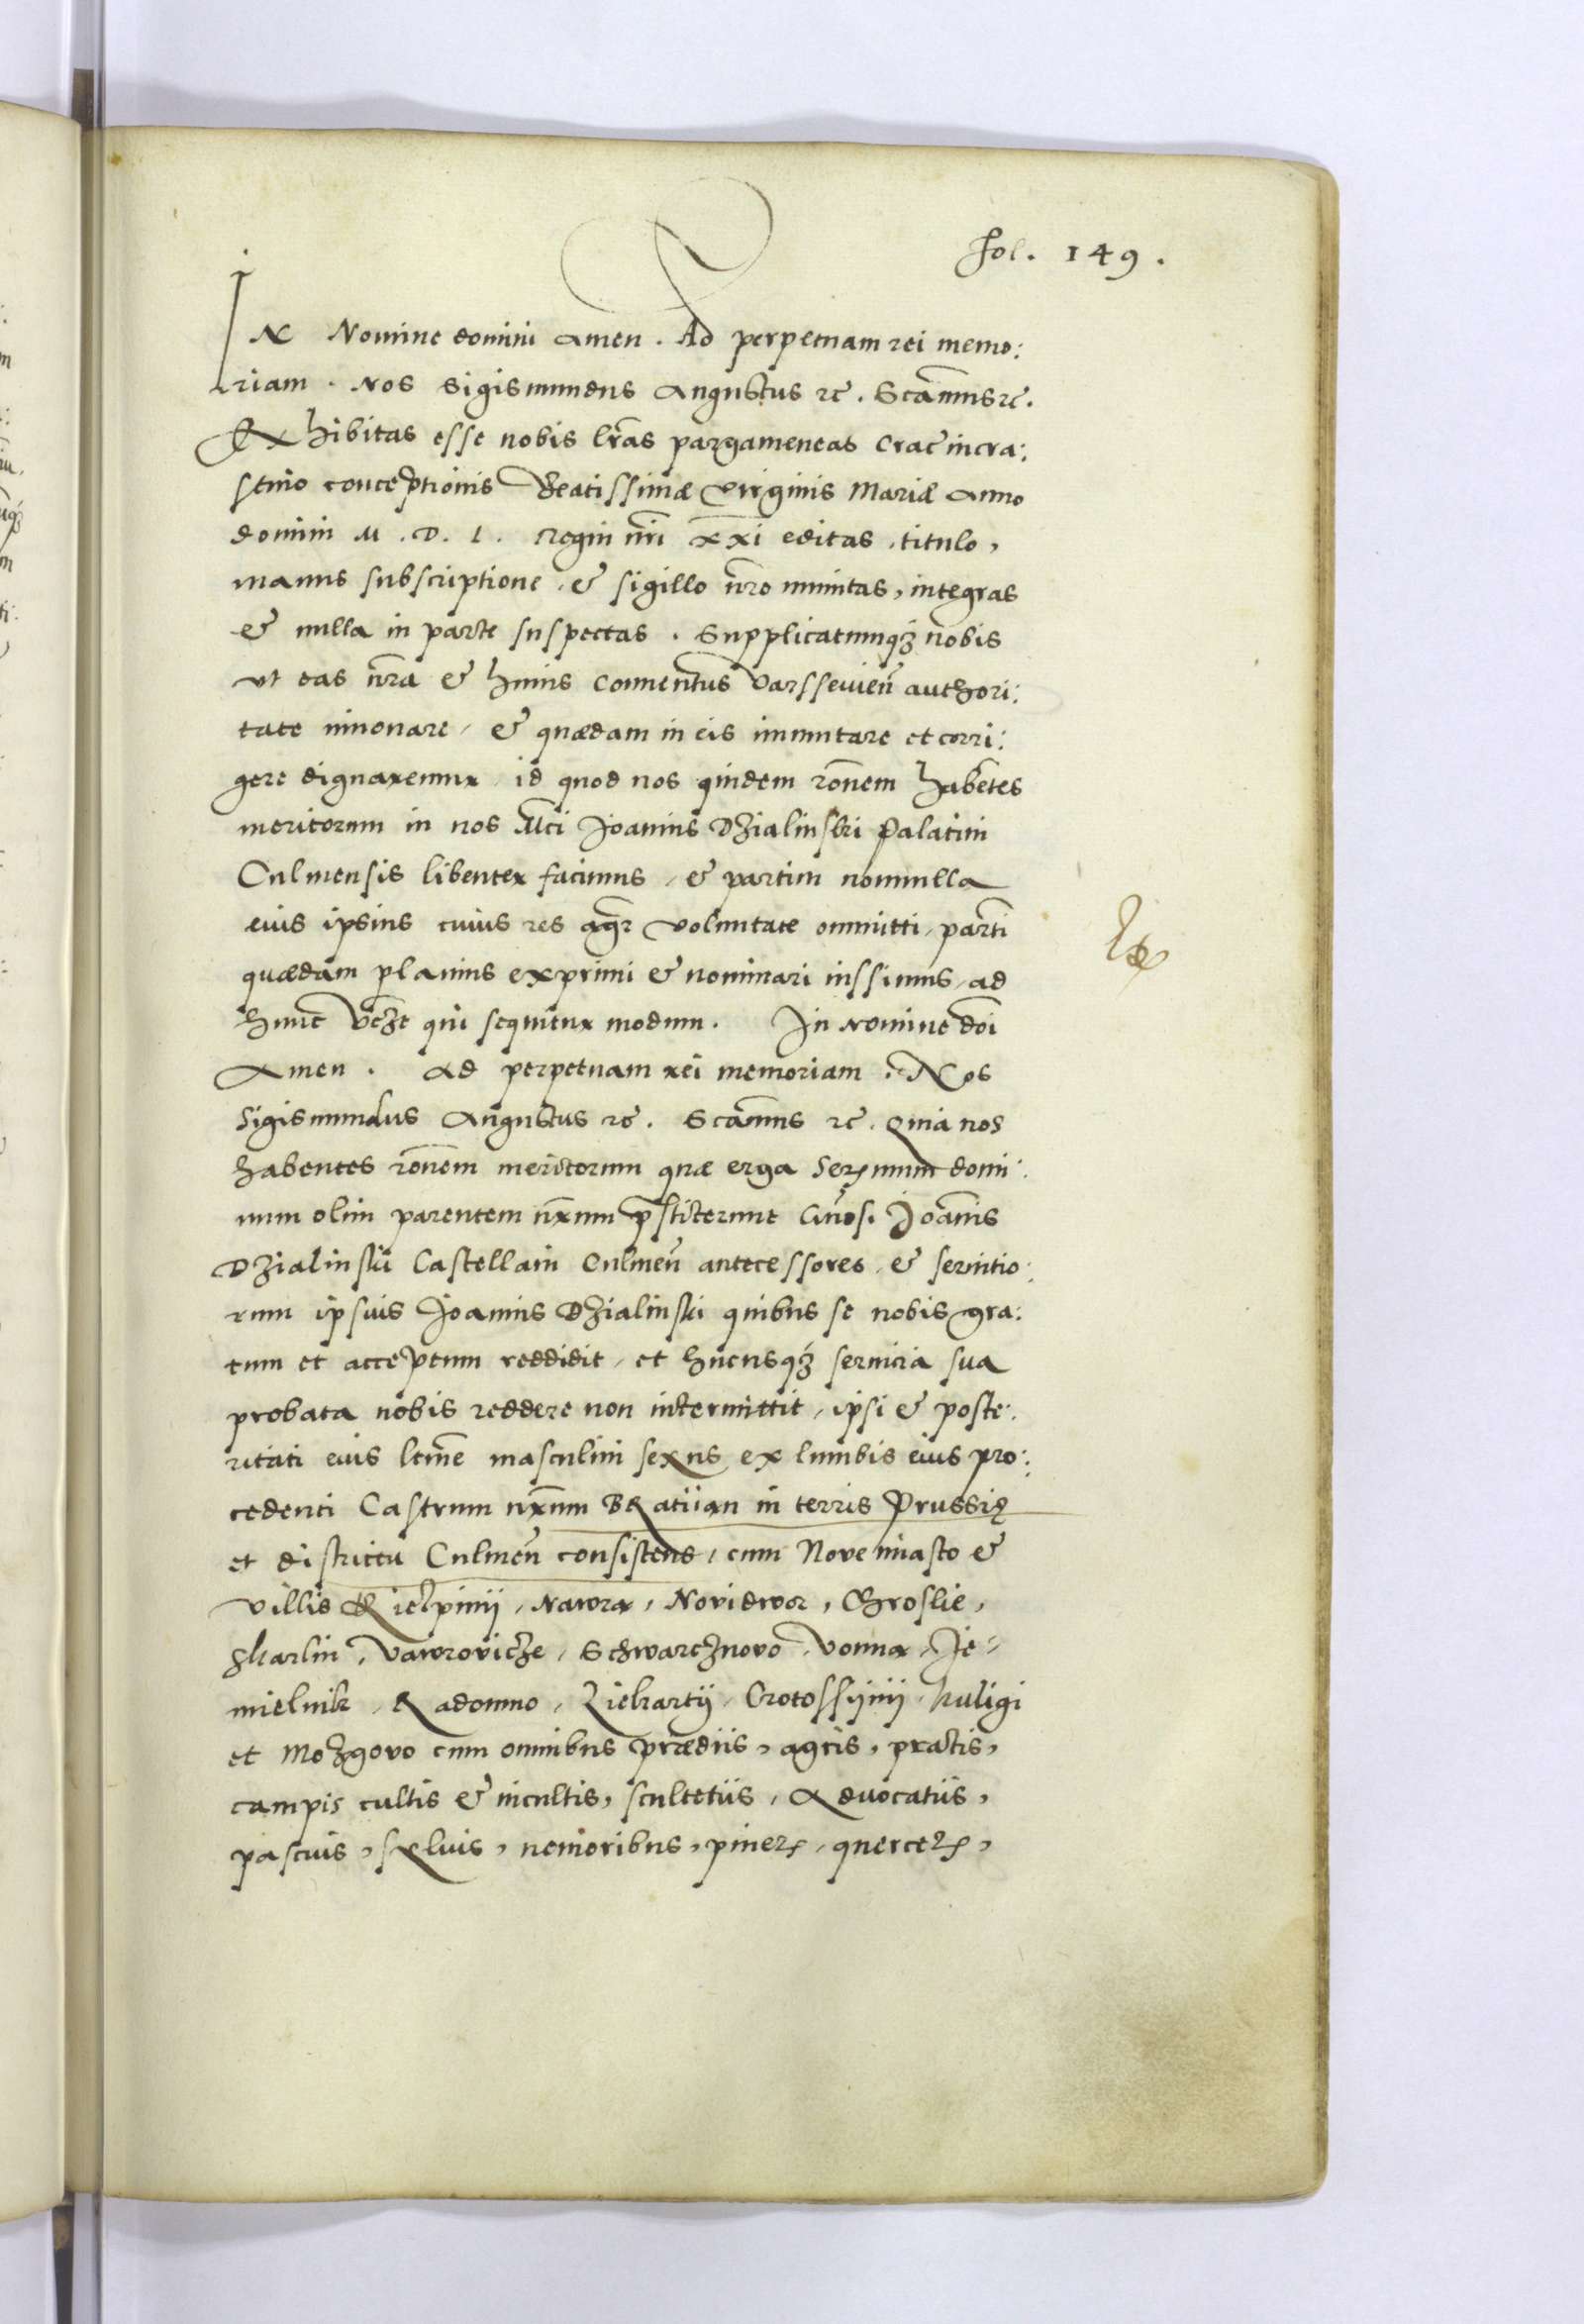 fol. 149.
IN Nomine domini amen. Ad perpetuam rei memo:
riam. Nos Sigismundus Augustus rc̃. Scãmus rc̃.
Exhibitas esse nobis lr̃as pargameneas Crac̃ in cra:
stino conceptionis Beatissimæ Virginis Mariæ anno
domini M. D. L. Regni nr̃i xxi editas, titulo,
manus subscriptione, & sigillo nr̃o munitas, integras
& nulla in parte suspectas. Supplicatumqꝫ nobis
ut eas nr̃a & huius conuentus Varsseuien̄ authori:
tate innouare, & quædam in eis immutare et corri:
gere dignaremur, id quod nos quidem rõnem habẽtes
meritorum in nos Mci Joannis Dzialinski Palatini
Culmensis libenter facimus, & partim nonnulla
eius ipsius cuius res agr̃ voluntate ommitti, partĩ
quædam planius exprimi & nominari iussimus, ad
hunc vcze qui sequitur modum. In nomine doĩ
Amen. Ad perpetuam rei memoriam. Nos
Sigismundus Augustus rc̃. Scãmus rc̃. Quia nos
habentes rõnem meritorum quæ erga Serꝫmum domi:
num olim parentem nr̃um p̃stiterunt Gñosi Joãnis
Dzialinski Castellani Culmen̄ antecessores, & seruitio:
rum ipsius Joannis Dzialinski quibus se nobis gra:
tum et acceptum reddidit, et hucusqꝫ seruicia sua
probata nobis reddere non intermittit, ipsi & poste:
ritati eius ltĩme masculini sexus ex lumbis eius pro:
cedenti Castrum nr̃um BRatiian in terris Prussię
et districtu Culmen̄ consistens, cum Nove miasto &
villis Kielpinij, Nawra, Novidwor, Chroslie,
Skarlin, Vawrovicze, Schwarcznovo, Vonna, Je-
mielnik, Radomno, Liekartij, Crotossijnij, Kuligi
et Mozgovo cum omnibus prædiis, agris, pratis,
campis cultis & incultis, scultetiis, aduocatiis,
pascuis, syluis, nemoribus, pinetꝫ, quercetꝫ,